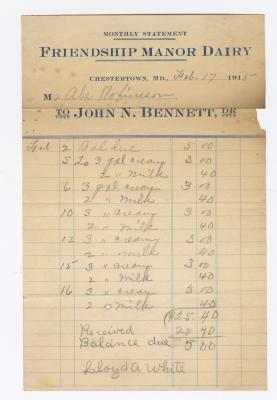 MONTHLY STATEMENT
FRIENDSHIP MANOR DAIRY
CHESTERTOWN, MD., Feb. 17 1915
M Abe Robinson
TO JOHN N. BENNETT, DR
Feb 2 Bal due 5 00
5 To 3 gal creamy 3 00
2 " milk 40
6 3 gal creamy 3 00
2 " milk 40
10 3 " creamy 3 00
2 " milk 40
12 3 " creamy 3 00
2 " milk 40
15 3 " creamy 3 00
2 " milk 40
16 3 " creamy 3 00
2 " milk 40
$25 40
Received 20 40
Balance due 5 00
Lloyd A White